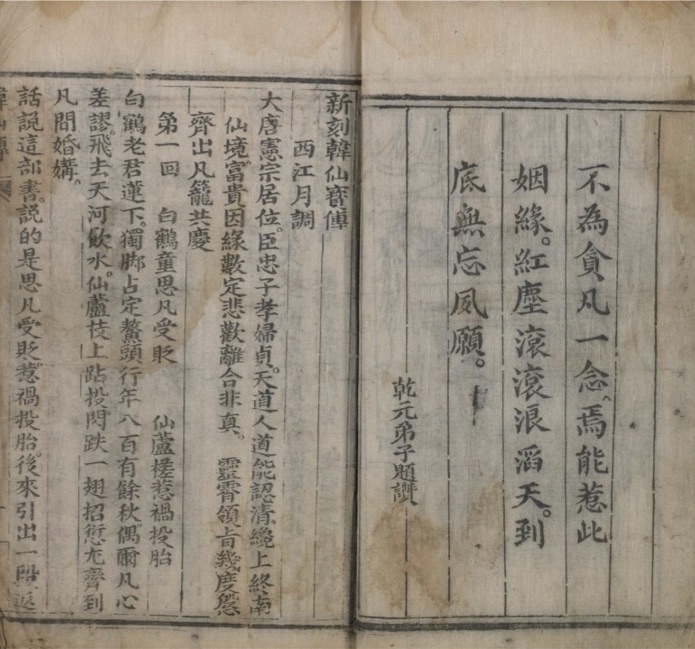 不為貪凡一念。焉能惹此
姻緣。紅塵滾滾浪滔天。到
底無忘夙願。
乾元弟子題讚
新刻韓仙寶傳
西江月調
大唐憲宗居位。臣忠子孝婦貞。天道人道能認清。纔上終南
仙境。富貴因緣數定。悲歡離合非真。靈霄領旨幾度愆
齊出凡籠共慶
第一回 白鶴童思凡受貶 仙蘆樓惹禍投胎
白鶴老君蓮下。獨脚占定鰲頭。行年八百有餘秋。偶爾凡心
差謬。飛去天河飲水。仙蘆枝上跕投。閃跌一翅招愆尤。齊到
凡間婚媾。
話說這部書。說的是思凡受貶。惹禍投胎。後來引出一段返
韓仙傳